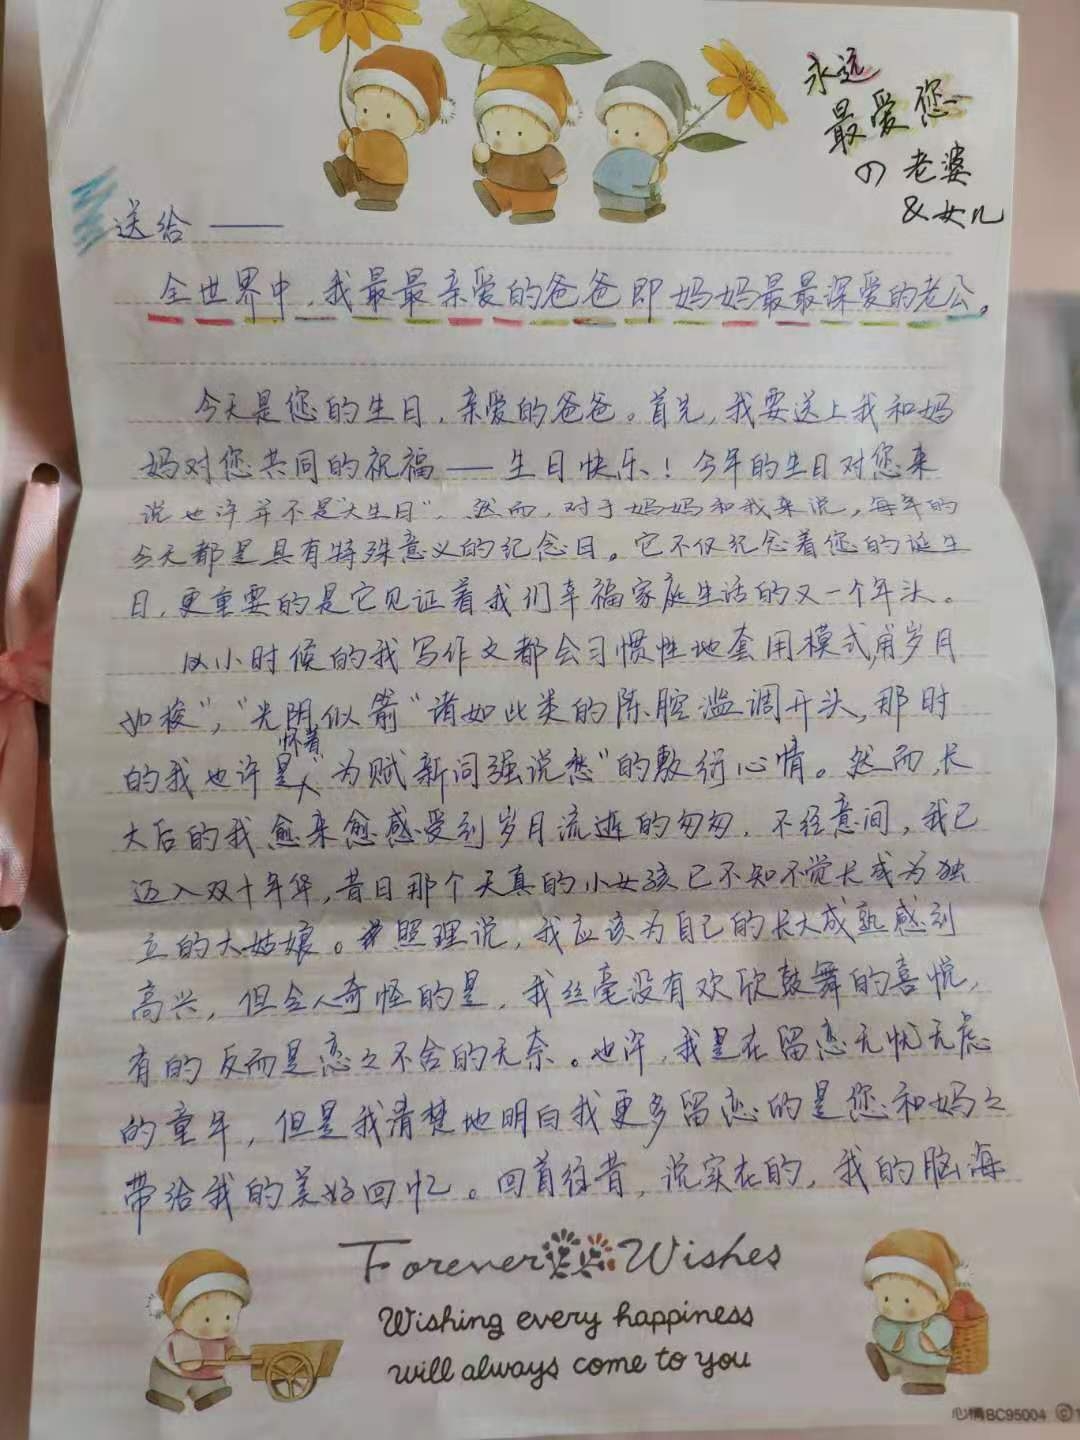 永远
最爱您
の老婆
&女儿
送给——
全世界中，我最最亲爱的爸爸即妈妈最最深爱的老公。
今天是您的生日，亲爱的爸爸。首先，我要送上我和妈
妈对您共同的祝福——生日快乐！今年的生日对您来
说也许并不是"大生日"，然而，对于妈妈和我来说，每年的
今天都是具有特殊意义的纪念日。它不仅纪念着您的诞生
日，更重要的是它见证着我们幸福家庭生活的又一个年头。
小时候的我写作文都会习惯性地套用模式，用岁月
如梭"，"光阴似箭"诸如此类的陈腔滥调开头，那时
的我也许是怀着"为赋新词强说愁"的敷衍心情。然而，长
大后的我愈来愈感受到岁月流逝的匆匆，不经意间，我已
迈入双十年华，昔日那个天真的小女孩已不知不觉长成为独
立的大姑娘。照理说，我应该为自己的长大成熟感到
高兴，但令人奇怪的是，我丝毫没有欢欣鼓舞的喜悦，
有的反而是恋恋不舍的无奈。也许，我是在留恋无忧无虑
的童年，但是我清楚地明白我更多留恋的是您和妈妈
带给我的美好回忆。回首往昔，说实在的，我的脑海
Forever Wishes
Wishing every happiness
will always come to you
心情BC95004 ©1